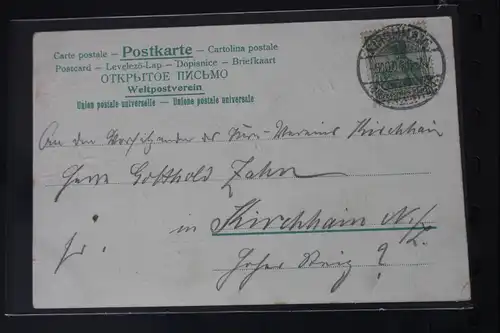 Carte postale – Postkarte – Cartolina postale
Postcard – Levelező-Lap – Dopisnice – Briefkaart
ОТКРЫТОЕ ПИСЬМО
Weltpostverein
Union postale universelle – Unione postale universale
An den Vorsitzenden des Turn-Vereins Kirchhain
Herrn Gotthold Zahn
in
Kirchhain N./L.
Hoher Steig ?